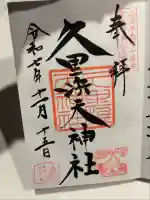 奉拝
久里浜天神社
令和七年十一月十五日